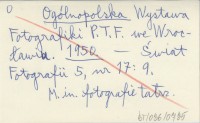 O
Ogólnopolska Wystawa
Fotografiki P.T.F. we Wroc-
ławiu. 1950 — Świat
Fotografii 5, nr 17: 9.
M. in. fotografie Tatr.